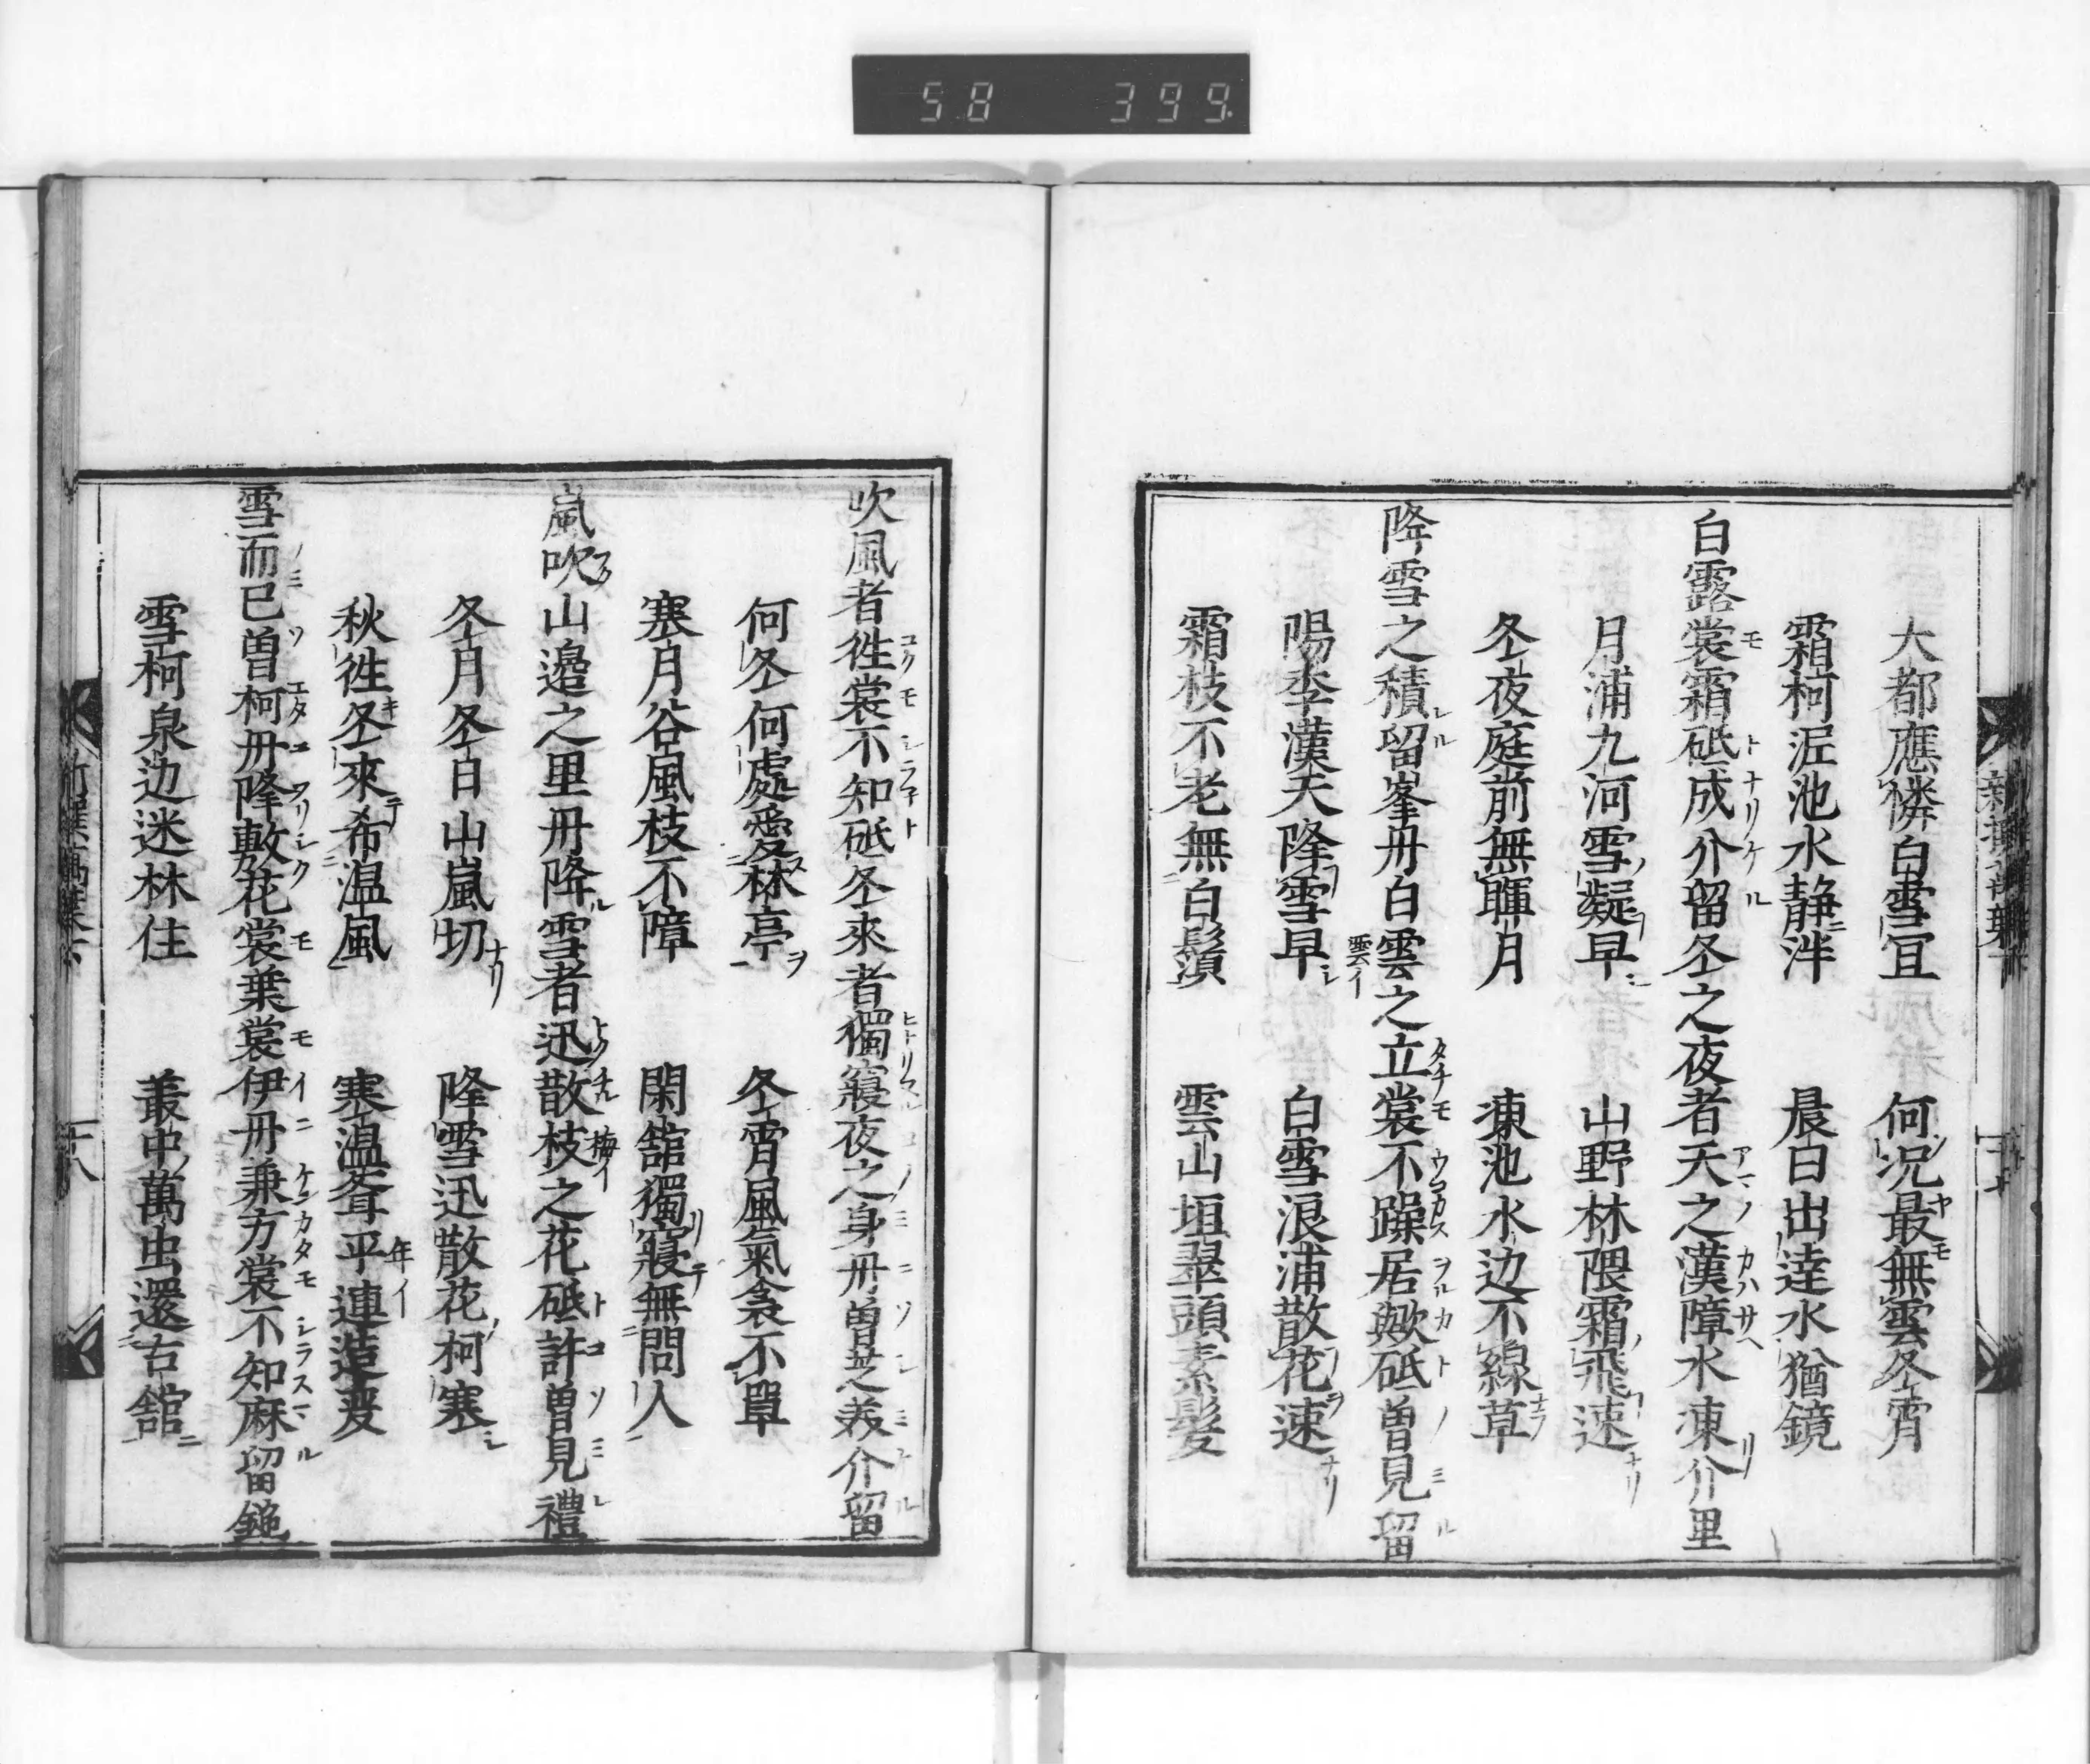 58 399
大都應憐白雪宜 何况最無雲冬宵
霜柯泥池水静泮 晨日出達水猶鏡
白露裳霜砥成介留冬之夜者天之漢障水凍介里
月浦九河雪凝早 山野林隈霜飛速
冬夜庭前無暉月 凍池水边不線草
降雪之積留峯丹白雲之立裳不躁居歟砥曽見留
陽季漢天降雪早 白雪浪浦散花速
霜枝不老無白鬚 雲山垣翠頭素髮
吹風者徃裳不知砥冬來者獨寢夜之身丹曽芝美介留
何冬何處愛林亭 冬宵風氣衾不單
寒月谷風枝不障 閑舘獨寢無問人
嵐吹山邉之里丹降雪者迅散枝之花砥許曽見禮
冬月冬日山嵐切 降雪迅散花柯寒
秋徃冬來希温風 寒温齊平連造変
雪而已曽柯丹降敷花裳葉裳伊丹兼方裳不知麻留鉋
雪柯泉边迷林住 叢中萬虫還古舘
十八